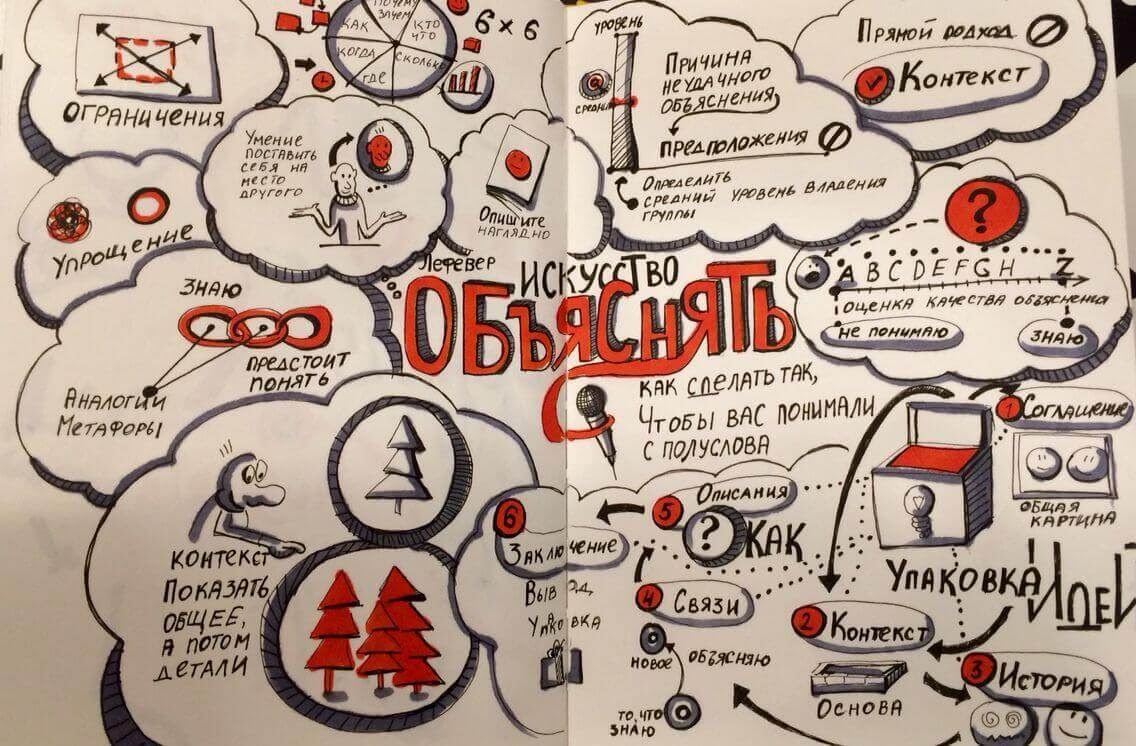 ОГРАНИЧЕНИЯ
ПОЧЕМУ
ЗАЧЕМ
КТО
ЧТО
СКОЛЬКО
ГДЕ
КОГДА
КАК
6×6
УМЕНИЕ
ПОСТАВИТЬ
СЕБЯ НА
МЕСТО
ДРУГОГО
ОПИШИТЕ
НАГЛЯДНО
УПРОЩЕНИЕ
ЗНАЮ
ПРЕДСТОИТ
ПОНЯТЬ
АНАЛОГИИ
МЕТАФОРЫ
КОНТЕКСТ
ПОКАЗАТЬ
ОБЩЕЕ,
А ПОТОМ
ДЕТАЛИ
ЛЕФЕВЕР
ИСКУССТВО
ОБЪЯСНЯТЬ
КАК СДЕЛАТЬ ТАК,
ЧТОБЫ ВАС ПОНИМАЛИ
С ПОЛУСЛОВА
УРОВЕНЬ
СРЕДНИЙ
ПРИЧИНА
НЕУДАЧНОГО
ОБЪЯСНЕНИЯ
ПРЕДПОЛОЖЕНИЯ
ОПРЕДЕЛИТЬ
СРЕДНИЙ УРОВЕНЬ ВЛАДЕНИЯ
ГРУППЫ
ПРЯМОЙ ПОДХОД
КОНТЕКСТ
?
A B C D E F G H Z
ОЦЕНКА КАЧЕСТВА ОБЪЯСНЕНИЯ
НЕ ПОНИМАЮ
ЗНАЮ
УПАКОВКА ИДЕЙ
1 СОГЛАШЕНИЕ
ОБЩАЯ
КАРТИНА
2 КОНТЕКСТ
ОСНОВА
3 ИСТОРИЯ
4 СВЯЗИ
НОВОЕ ОБЪЯСНЯЮ
ТО, ЧТО
ЗНАЮ
5 ОПИСАНИЯ
? КАК
6
ЗАКЛЮЧЕНИЕ